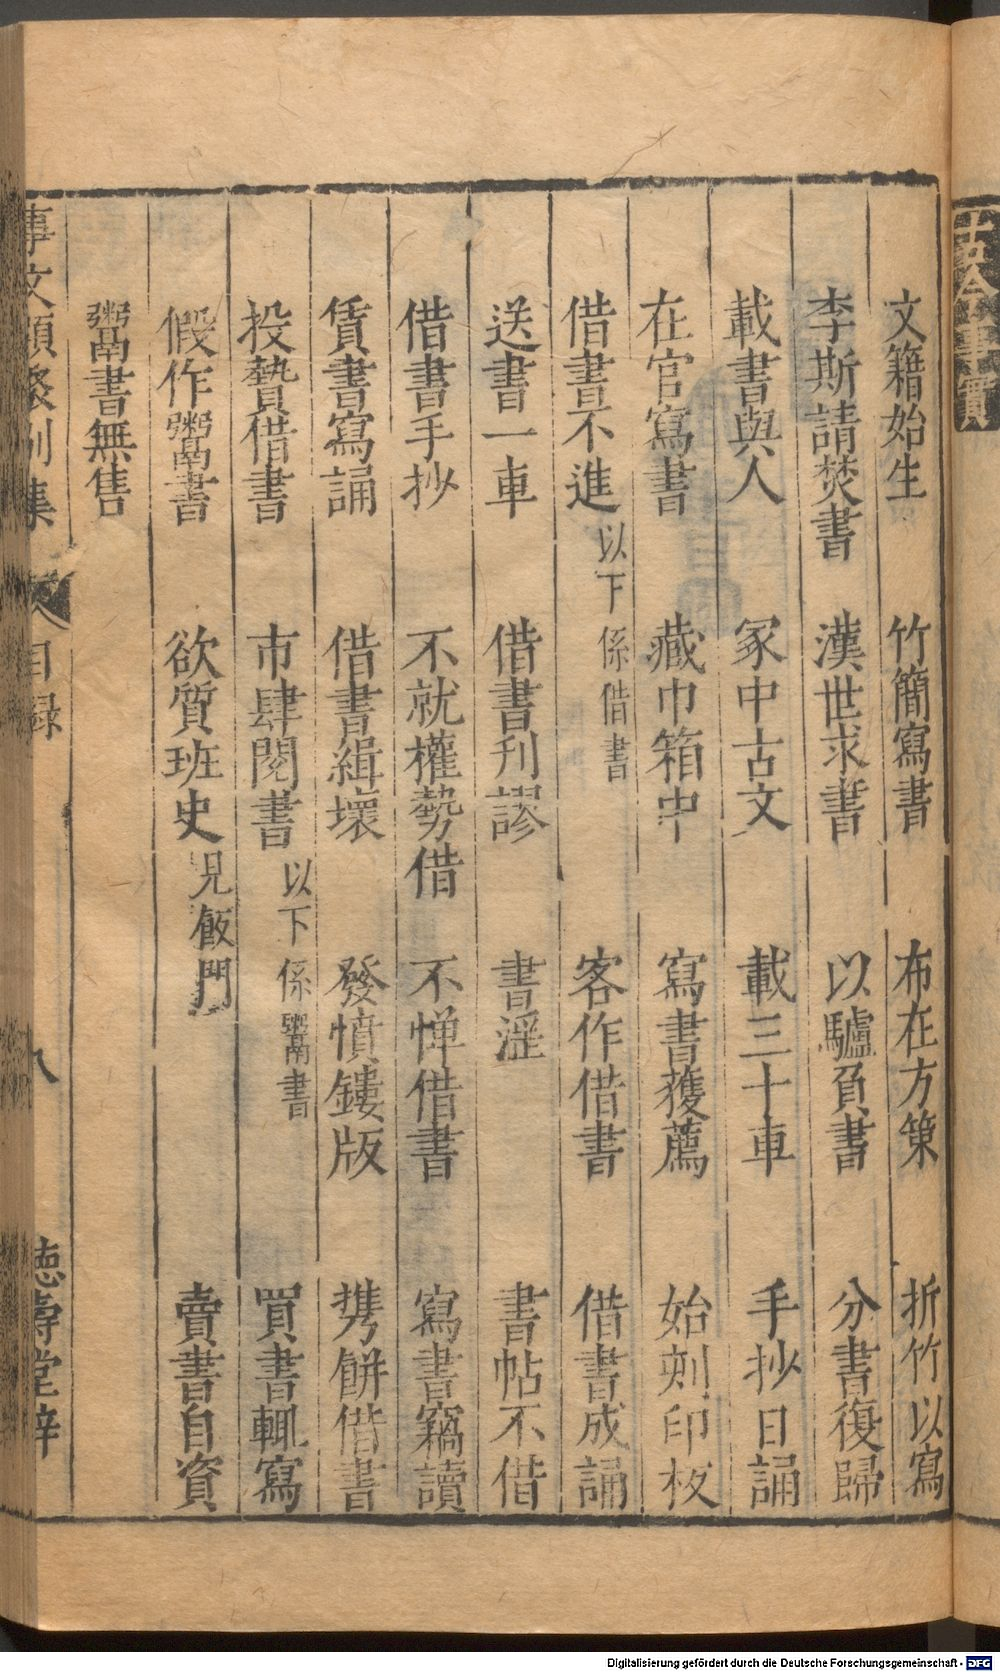 文籍始生　竹簡寫書　布在方策　折竹以寫
李斯請焚書　漢世求書　以驢負書　分書復歸
載書與人　冢中古文　載三十車　手抄日誦
在官寫書　藏巾箱中　寫書獲薦　始刻印板
借書不進　以下係借書　客作借書　借書成誦
送書一車　借書刊謬　書淫　書帖不借
借書手抄　不就權勢借　不憚借書　寫書竊讀
賃書寫誦　借書緝壞　發憤鏤版　携餅借書
投贄借書　市肆閱書　以下係鬻書　買書輒寫
假作鬻書　欲質班史　見飯門　賣書自資
鬻書無售
事文類聚别集　目録　八　德壽堂梓
Digitalisierung gefördert durch die Deutsche Forschungsgemeinschaft - DFG